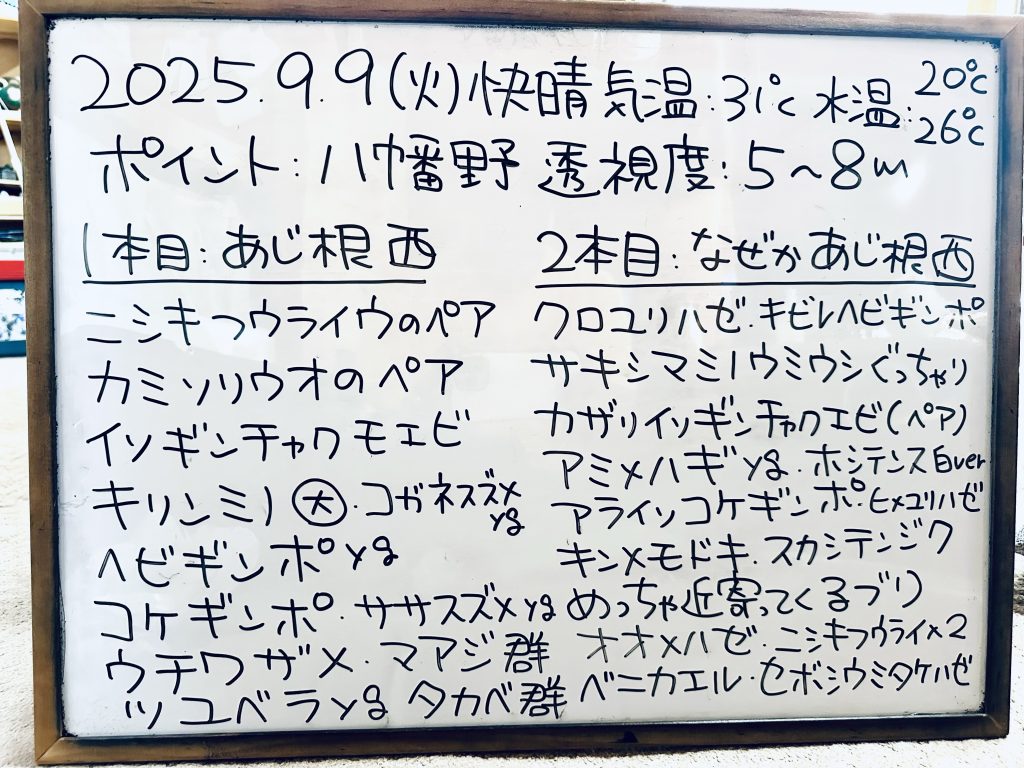 2025.9.9(火)快晴 気温:31℃ 水温:20℃
26℃
ポイント:八幡野 透視度:5~8m
1本目:あじ根西
ニシキフウライウのペア
カミソリウオのペア
イソギンチャクモエビ
キリンミノ 大・コガネスズメyg
ヘビギンポyg
コケギンポ・ササスズメyg
ウチワザメ・マアジ群
ツユベラyg タカベ群
2本目:なぜかあじ根西
クロユリハゼ・キビレヘビギンポ
サキシマミノウミウシぐっちゃり
カザリイソギンチャクエビ(ペア)
アミメハギyg・ホシテンス白ver
アライソコケギンポ・ヒメユリハゼ
キンメモドキ・スカシテンジク
めっちゃ近寄ってくるブリ
オオメハゼ・ニシキフウライ×2
ベニカエル・セボシウミタケハゼ